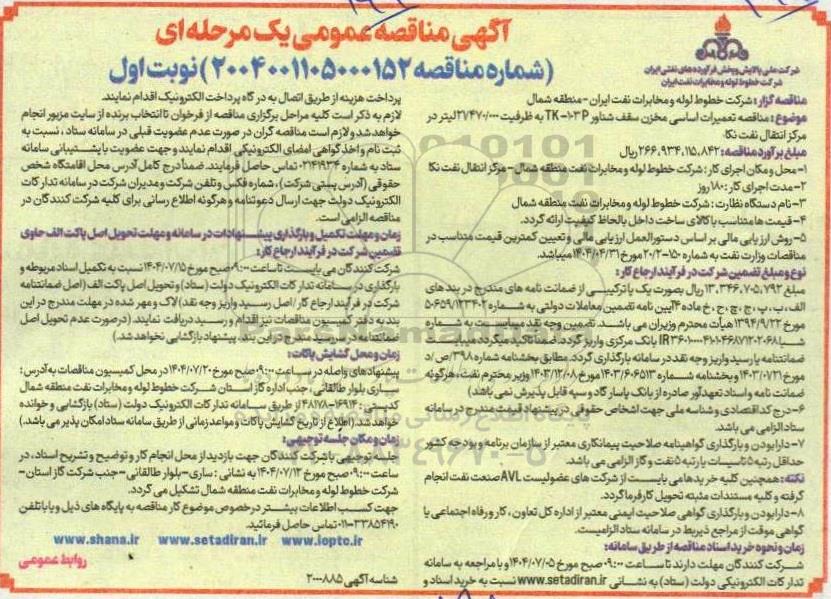 آگهی مناقصه عمومی یک مرحله ای
(شماره مناقصه ۲۰۰۴۰۰۱۱۰۵۰۰۰۱۵۲) نوبت اول
شرکت ملی پالایش و پخش فرآورده های نفتی ایران
شرکت خطوط لوله و مخابرات نفت ایران
مناقصه گزار: شرکت خطوط لوله و مخابرات نفت ایران - منطقه شمال
موضوع: مناقصه تعمیرات اساسی مخزن سقف شناور TK-103P به ظرفیت ۲۷۴۷۰/۰۰۰ لیتر در
مرکز انتقال نفت نکا
مبلغ برآورد مناقصه: ۲۶۶,۹۳۴,۱۱۵,۸۴۲ ریال
۱- محل و مکان اجرای کار: شرکت خطوط لوله و مخابرات نفت منطقه شمال - مرکز انتقال نفت نکا
۲- مدت اجرای کار: ۱۸۰ روز
۳- نام دستگاه نظارت: شرکت خطوط لوله و مخابرات نفت منطقه شمال
۴- قیمت ها متناسب با کالای ساخت داخل با لحاظ کیفیت ارائه گردد.
۵- روش ارزیابی مالی بر اساس دستورالعمل ارزیابی مالی و تعیین کمترین قیمت متناسب در
مناقصات وزارت نفت به شماره ۱۵۰-۲۰/۲ مورخ ۱۴۰۴/۰۴/۳۱ میباشد.
نوع و مبلغ تضمین شرکت در فرآیند ارجاع کار:
مبلغ ۱۳,۳۴۶,۷۰۵,۷۹۲ ریال بصورت یک یا ترکیبی از ضمانت نامه های مندرج در بند های
الف، ب، پ، ج، چ، ح، خ ماده ۴ آیین نامه تضمین معاملات دولتی به شماره ۱۲۳۴۰۲/ت۵۰۶۵۹ه
مورخ ۱۳۹۴/۹/۲۲ هیأت محترم وزیران می باشد. تضمین وجه نقد میبایست به شماره
شبا IR۳۶۰۱۰۰۰۰۴۱۰۱۰۴۶۸۷۱۲۰۲۰۶۸ بانک مرکزی واریز گردد. ضمناً تاکید میگردد مبلغ
ضمانتنامه یا رسید واریز وجه نقد در سامانه بارگذاری گردد. مطابق بخشنامه شماره ۳۹۸/ص/د
مورخ ۱۴۰۳/۰۷/۲۱ و بخشنامه شماره ۱۴۰۳/۶۰۶۵۱۳ مورخ ۱۴۰۳/۱۲/۰۸ وزیر محترم نفت، هرگونه
ضمانت نامه و اسناد تعهدآور صادره از بانک پاسارگاد و سپه قابل پذیرش نمی باشد)
۶- درج کد اقتصادی و شناسه ملی جهت اشخاص حقوقی در پیشنهاد قیمت مندرج در سامانه
ستاد الزامی می باشد.
۷- دارا بودن و بارگذاری گواهینامه صلاحیت پیمانکاری معتبر از سازمان برنامه و بودجه کشور
حداقل رتبه ۵ تاسیسات یا رتبه ۵ نفت و گاز الزامی می باشد.
نکته: همچنین کلیه خریدها می بایست از شرکت های عضو لیست AVL صنعت نفت انجام
گرفته و کلیه مستندات مثبته تحویل کارفرما گردد.
۸- دارا بودن و بارگذاری گواهی صلاحیت ایمنی معتبر از اداره کل تعاون، کار و رفاه اجتماعی یا
گواهی موقت از مراجع ذیربط در سامانه ستاد الزامیست.
زمان و نحوه خرید اسناد مناقصه از طریق سامانه:
شرکت کنندگان مهلت دارند تا ساعت ۰۹:۰۰ صبح مورخ ۱۴۰۴/۰۷/۰۵ و با مراجعه به سامانه
تدارکات الکترونیکی دولت (ستاد) به نشانی www.setadiran.ir نسبت به خرید اسناد و
پرداخت هزینه از طریق اتصال به درگاه پرداخت الکترونیک اقدام نمایند.
لازم به ذکر است کلیه مراحل برگزاری مناقصه از فرخوان تا انتخاب برنده از سایت مزبور انجام
خواهد شد و لازم است مناقصه گران در صورت عدم عضویت قبلی در سامانه ستاد، نسبت به
ثبت نام و اخذ گواهی امضای الکترونیکی اقدام نمایند و جهت عضویت با پشتیبانی سامانه
ستاد به شماره ۰۲۱۴۱۹۳۴ تماس حاصل فرمایند. ضمناً درج کامل آدرس محل اقامتگاه شخص
حقوقی (آدرس پستی شرکت)، شماره فکس و تلفن شرکت و مدیران شرکت در سامانه تدارکات
الکترونیک دولت جهت ارسال دعوتنامه و هرگونه اطلاع رسانی برای کلیه شرکت کنندگان در
مناقصه الزامی است.
زمان و مهلت تکمیل و بارگذاری پیشنهادات در سامانه و مهلت تحویل اصل پاکت الف حاوی
تضمین شرکت در فرآیند ارجاع کار:
شرکت کنندگان می بایست تا ساعت ۰۹:۰۰ صبح مورخ ۱۴۰۴/۰۷/۱۵ نسبت به تکمیل اسناد مربوطه و
بارگذاری در سامانه تدارکات الکترونیک دولت (ستاد) و تحویل اصل پاکت الف (اصل ضمانتنامه
شرکت در فرآیند ارجاع کار/اصل رسید واریز وجه نقد) لاک و مهر شده در مهلت مندرج در این
بند به دفتر کمیسیون مناقصات نیز اقدام و رسید دریافت نمایند. (در صورت عدم تحویل اصل
ضمانتنامه در سررسید مندرج در این بند، پیشنهاد بازگشایی نخواهد شد.)
زمان و محل گشایش پاکات:
پیشنهادهای واصله در ساعت ۰۹:۰۰ صبح مورخ ۱۴۰۴/۰۷/۲۰ در محل کمیسیون مناقصات به آدرس:
ساری بلوار طالقانی، جنب اداره گاز استان شرکت خطوط لوله و مخابرات نفت منطقه شمال
کدپستی: ۱۶۹۱۴-۴۸۱۷۸ از طریق سامانه تدارکات الکترونیک دولت (ستاد) بازگشایی و خوانده
خواهد شد. (اطلاع از تاریخ گشایش پاکات و مواعد زمانی از طریق سامانه ستاد امکان پذیر می باشد.)
زمان و مکان جلسه توجیهی:
جلسه توجیهی با شرکت کنندگان جهت بازدید از محل انجام کار و توضیح و تشریح اسناد، در
ساعت ۰۹:۰۰ صبح مورخ ۱۴۰۴/۰۷/۱۲ به نشانی: ساری - بلوار طالقانی - جنب شرکت گاز استان -
شرکت خطوط لوله و مخابرات نفت منطقه شمال تشکیل می گردد.
جهت کسب اطلاعات بیشتر در خصوص موضوع کار مناقصه به پایگاه های ذیل و یا با تلفن
۰۱۱-۳۳۸۵۴۱۹۰ تماس حاصل فرمائید.
www.shana.ir www.setadiran.ir www.ioptc.ir
روابط عمومی
شناسه آگهی ۲۰۰۰۸۸۵